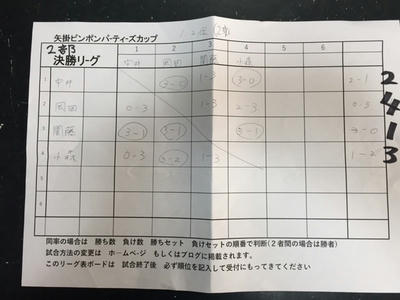 矢掛ピンポンパーティーズカップ
2部
決勝リーグ
1 2 3 4 5 6
中井 岡田 岡藤 小森
1 中井 3-0 1-3 3-0 2-1 2
2 岡田 0-3 1-3 2-3 0-3 4
3 岡藤 3-1 3-1 3-1 3-0 1
4 小森 0-3 3-2 1-3 1-2 3
同率の場合は 勝ち数 負け数 勝ちセット 負けセットの順番で判断(2者間の場合は勝者)
試合方法の変更は ホームページ もしくはブログに掲載されます。
このリーグ表ボードは 試合終了後 必ず順位を記入して受付にもってきてください